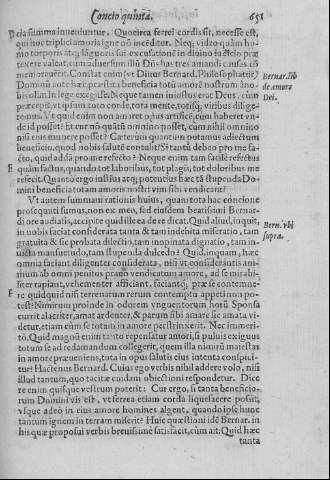 Concio quinta. 651
D cia summa inveniuntur. Quocirca ferrei cordis sit, necesse est,
qui huc triplici amoris igne nõ incenditur. Neq; video quàm ho-
mo torporis atq; languoris sui excusationē in divino
texere valeat, cum adversum illū Dñs has tres amandi causas cõ
memoraverit. Constat enim (ut Divus Bernard. Philosophatur)
Dominū note hæc præstita beneficia totū amorē nostrum
in lege exegisse. Neque tanto iniustus erat Deus, cùm
præcepit, ut ipsum toto corde, tota mente, totisq; viribus dilige-
remus. Ut quid enim non amaret opus artificē, cum haberet un-
de id posset? Et cur nõ quãtū omnino posset, cum nihil omnino
nisi eius munere posset? Cæterùm quantum putamus adiectum
beneficio, quod nobis salutē contulit? Si totū debeo pro me fa-
cto, quid addā pro me refecto? Neque enim tam facilè refectus
E quàm factus, quando tot laboribus, tot plagis, tot doloribus me
refecit. Quanto ergo iustius atq; potentius hæc tã stupenda Do-
mini beneficia totam amoris nostri vim sibi vendicant?
Ut autem summam rationis huius, quam tota hac concione
prosequuti sumus, non ex meo, sed eiusdem beatissimi Bernar-
di ore audiatis, accipite quid ille ea de re dicat. Quid aliud, inquit,
in nobis faciat considerata tanta & tam indebita miseratio, tam
gratuita & sic probata dilectio, tam inopinata dignatio, tam in-
victa mansuetudo, tam stupenda dulcedo? Quid, inquam, hæc
omnia faciant diligenter considerata, nisi ut considerantis ani-
mum ab omni penitus pravo vendicatum amore, ad se mirabi-
liter rapiant, vehementer afficiant, faciantq; præ se contemne-
F re quidquid nisi terrenarum rerum contemptu appeti non po-
test? Nimirum proinde in odorem unguentorum horū Sponsa
currit alacriter, amat ardenter, & parum sibi amare sic amata vi-
detur, etiam cùm se totam in amore perstrinxerit. Nec immeri-
tò. Quid magnū enim tanto repensatur amori, si pulvis exiguus
totum se ad redamandum collegerit, quem illa nimirū maiestas
in amore præveniens, tota in opus salutis eius intenta conspici-
tur? Hactenus Bernard. Cuius ego verbis nihil addere volo, nisi
illud tantum, quo tacitæ cuidam obiectioni respondetur. Dice
re enim quisque vestrum poterit: Cur ergo, si tanta beneficio-
rum Domini vis est, ut ferrea etiam corda liquescere possit,
usque adeò in eius amore homines algent, quando ipse hunc
tantum ignem in terram miserit? Huic quæstioni idē Bernar. in
his quæ proposui verbis brevissimè satisfacit, cùm ait: Quid hæc
tanta
Bernar. lib
de amore
Dei.
Bern. ubi
supra.